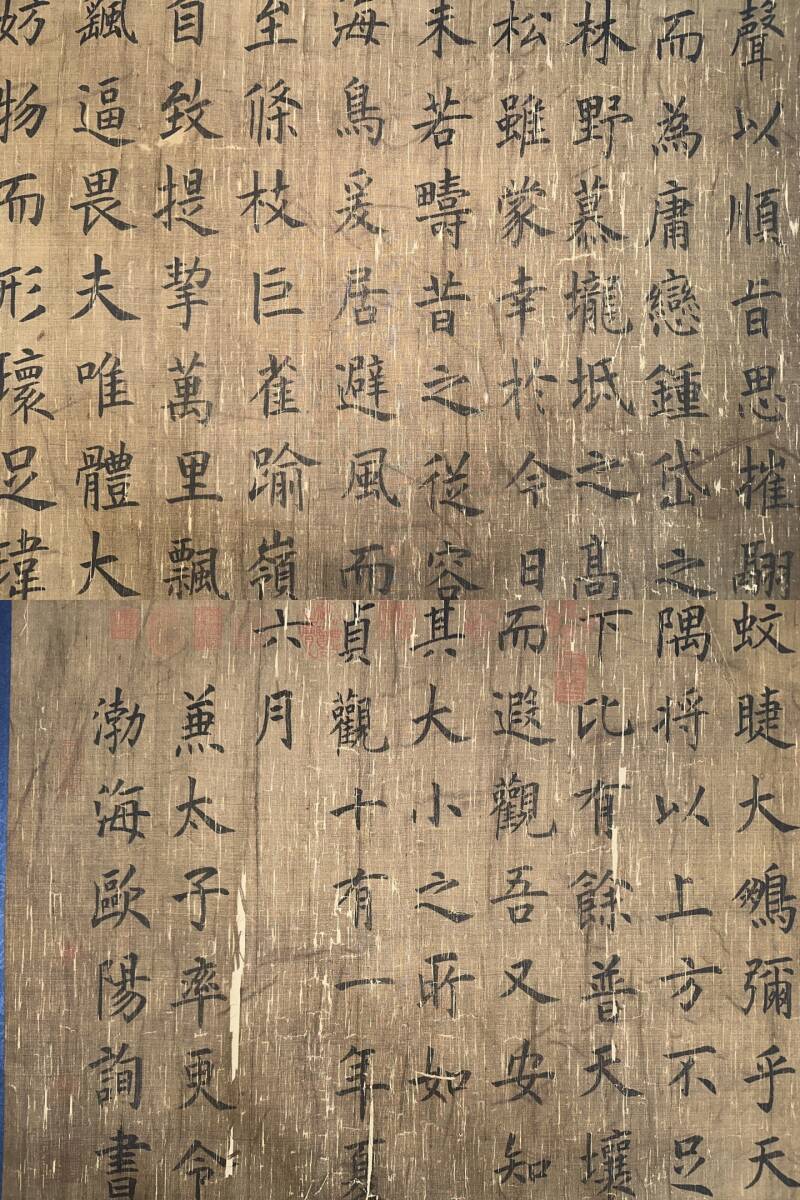 聲以順旨思摧翮
而為庸戀鍾岱之
林野慕壠坻之高
松雖蒙幸於今日
未若疇昔之從容
海鳥爰居避風而
至條枝巨雀踰嶺
自致提挈萬里飄
飄逼畏夫唯體大
妨物而形瓌足瑋
蚊睫大鵬彌乎天
隅将以上方不足
下比有餘普天壤
而遐觀吾又安知
其大小之所如
貞觀十有一年夏
六月
兼太子率更令
渤海歐陽詢書